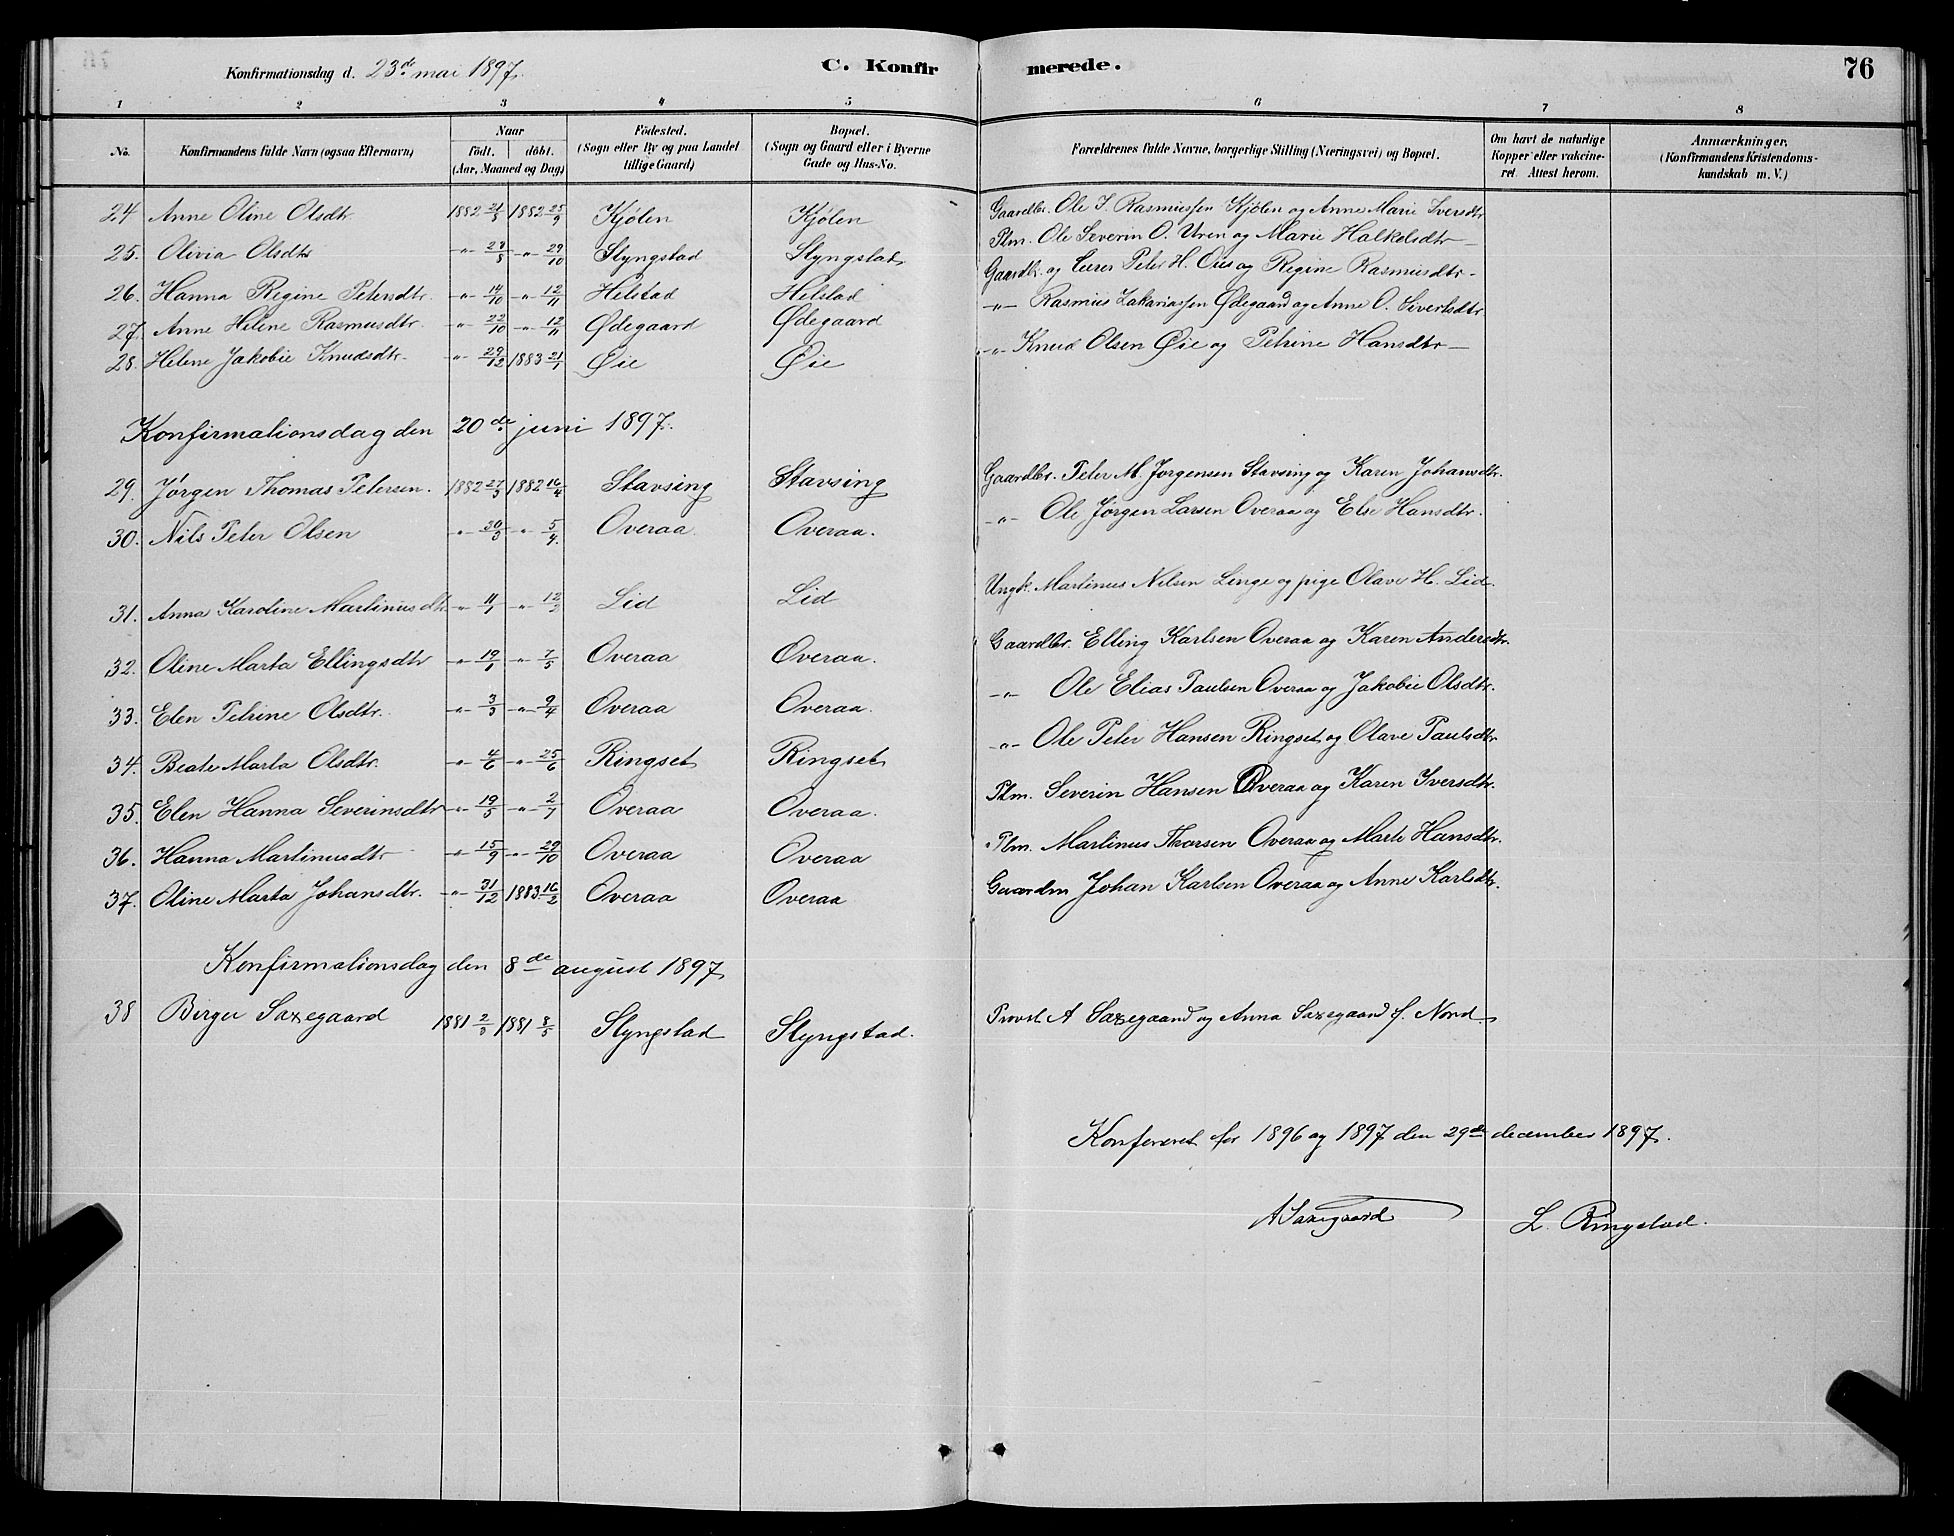 Konfirmationsdag d. 23de mai 1897.
C. Konfirmerede.
76
1 2 3 4 5 6 7 8
No.
Konfirmandens fulde Navn (ogsaa Efternavn)
Naar
født. døbt.
(Aar, Maaned og Dag)
Födested.
(Sogn eller By og paa Landet
tillige Gaard)
Bopæl.
(Sogn og Gaard eller i Byerne
Gade og Hus-No.
Forældrenes fulde Navne, borgerlige Stilling (Næringsvei) og Bopæl.
Om havt de naturlige
Kopper eller vakcine-
ret. Attest herom.
Anmærkninger.
(Konfirmandens Kristendoms-
kundskab m. V.)
24 Anne Oline Olsdtr 1882 21/5 1882 25/9 Kjölen Kjölen Gaardbr. Ole J. Rasmussen Kjölen og Anne Marie Iversdtr
25. Olivia Olsdtr -"- 28/8 -"- 29/10 Slyngstad Slyngstad Plm. Ole Severin O. Uren og Marie Halkelsdtr
26. Hanna Regine Petersdtr. -"- 14/10 -"- 12/11 Helstad Helstad Gaardb. og Peter H. Ous og Regine Rasmusdtr
27. Anne Helene Rasmusdtr. -"- 22/10 -"- 12/11 Ødegaard Ødegaard -"- Rasmus Zakariassen Ødegaard og Anne O. Sivertsdtr
28. Helene Jakobie Knudsdtr -"- 29/12 1883 21/1 Øie Øie -"- Knud Olsen Øie og Petrine Hansdtr
Konfirmationsdag den 20de juni 1897.
29. Jørgen Thomas Petersen. 1882 27/3 1882 16/4 Stavsing Stavsing Gaardbr. Peter M. Jorgensen Stavsing og Karen Johansdtr.
30. Nils Peter Olsen -"- 30/3 -"- 5/4 Overaa Overaa. -"- Ole Jørgen Larsen Overaa og Else Hansdtr.
31. Anna Karoline Martinusdtr -"- 11/1 -"- 12/2 Lid Lid Ungk. Martinus Nilsen Linge og pige Olave H. Lid.
32. Oline Marta Ellingsdtr -"- 19/1 -"- 7/5 Overaa Overaa. Gaardbr. Elling Karlsen Overaa og Karen Andersdtr.
33. Elen Petrine Olsdtr. -"- 3/3 -"- 9/4 Overaa Overaa. -"- Ole Elias Paulsen Overaa og Jakobie Olsdtr.
34. Beate Marta Olsdtr. -"- 4/6 -"- 25/6 Ringset Ringset -"- Ole Peter Hansen Ringset og Olave Paulsdtr
35. Elen Hanna Severinsdtr -"- 19/5 -"- 2/7 Overaa Overaa. Plm. Severin Hansen Overaa og Karen Iversdtr.
36. Hanna Martinusdtr -"- 15/9 -"- 29/10 Overaa Overaa Plm. Martinus Thorsen Overaa og Marte Hansdtr.
37. Oline Marta Johansdtr. -"- 31/12 1883 16/2 Overaa Overaa Gaardm Johan Karlsen Overaa og Anne Karlsdtr.
Konfirmationsdag den 8de august 1897
38 Birger Saxegaard 1881 2/3 1881 8/5 Slyngstad Slyngstad. Provst A Saxegaard og Anna Saxegaard f. Nord
Konfereret for 1896 og 1897 den 29de december 1897.
A Saxegaard L. Ringstad.